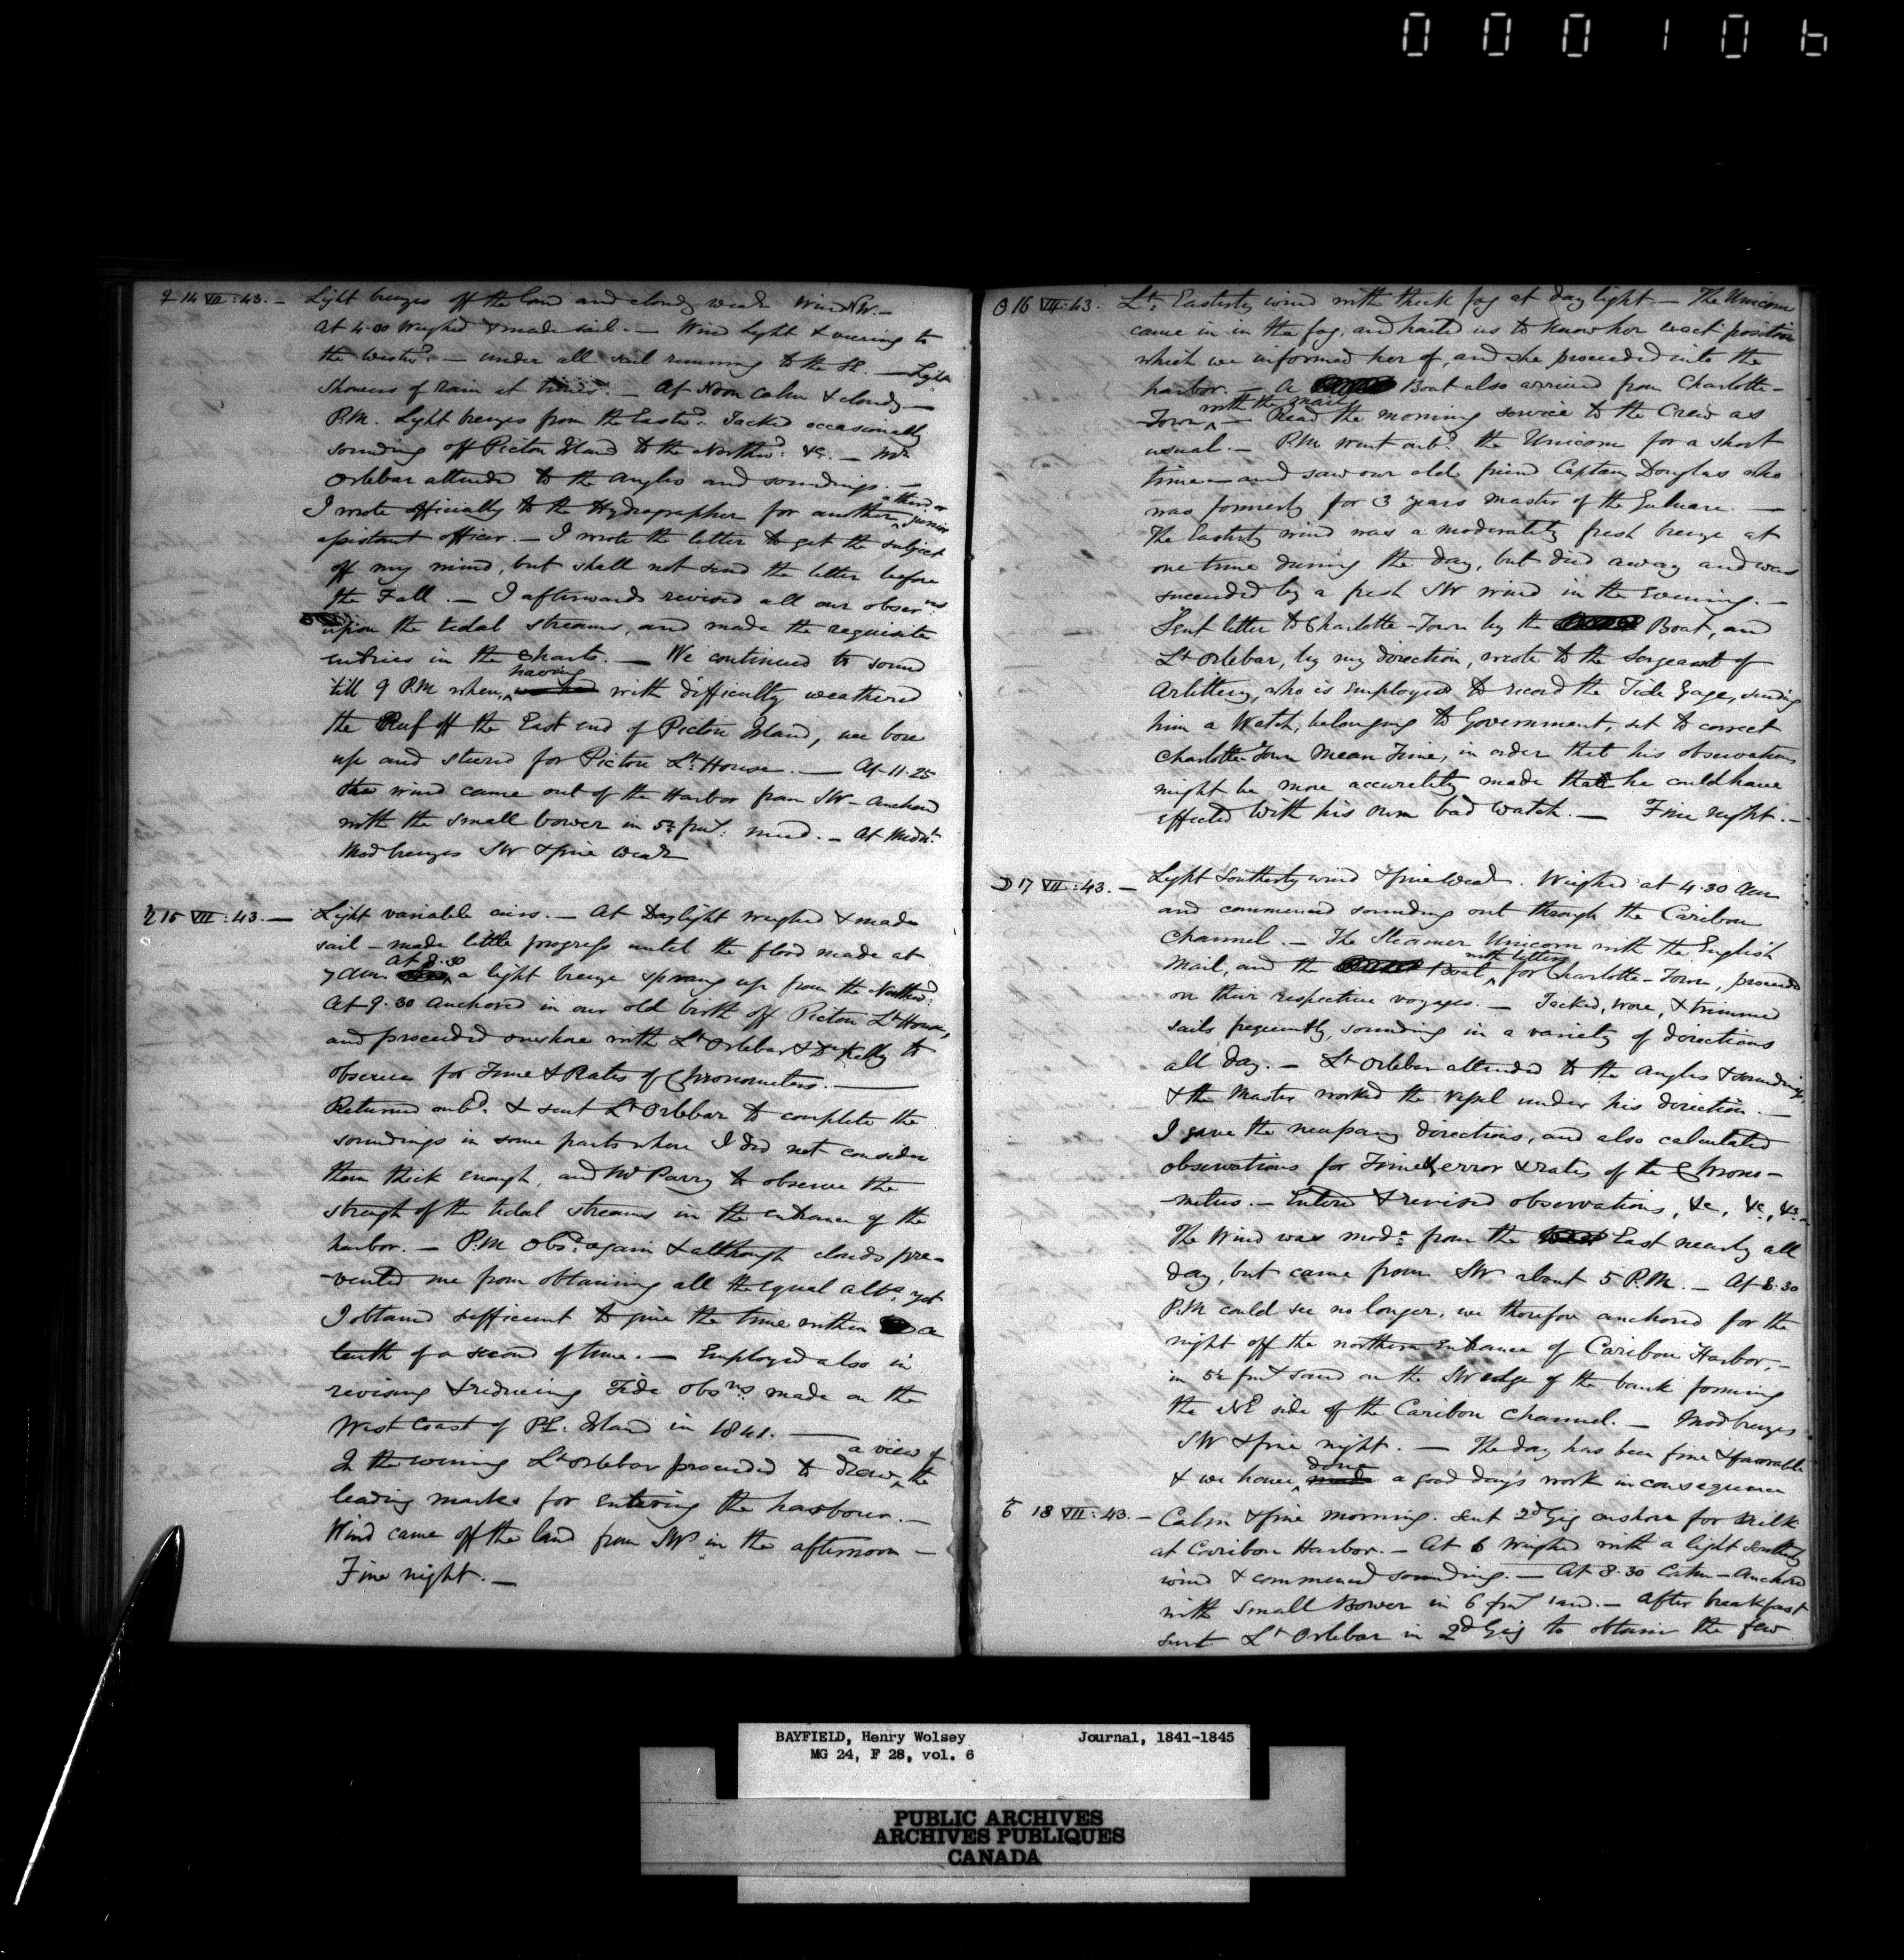 000106
♀ 14 VII: 43. — Light breezes off the land and cloudy weath Wind NW. —
at 4.00 Weighed & made sail. — Wind light & veering to
the Westwd. — under all sail running to the SE. — Light
showers of rain at times. — At Noon Calm & cloudy —
P.M. Light breezes from the Eastwd. Tacked occasionally
sounding off Picton Island to the Northwd. &c. —
Orlebar attended to the Angles and soundings. —
I wrote officially to the Hydrographer for another ^ a third or junior
assistant officer. — I wrote the letter to get the subject
off my mind, but shall not send the letter before
the Fall. — I afterwards revised all our observns
upon the tidal streams, and made the requisite
entries in the Charts. — We continued to sound
till 9 P.M when, ^ having with difficulty weathered
the Reef off the East end of Picton Island, we bore
up and steered for Picton Lt. House. — At 11.25
the wind came out of the Harbor from SW — Anchored
with the small bower in 5½ fms: mud. — At Midnt.
Mod breezes SW & fine Weath
♄ 15 VII: 43. — Light variable airs. — At Daylight weighed & made
sail — made little progress until the flood made at
7 am. ^ at 8.30 a light breeze sprang up from the Northwd:
At 9.30 Anchored in our old birth off Picton Lt House,
and proceeded onshore with Lt Orlebar & Dr Kelly to
observe for Time & Rates of Chronometers. —
Returned onbd. & sent Lt Orlebar to complete the
soundings in some parts where I did not consider
them thick enough, and Mr Parry to observe the
strength of the tidal streams in the entrance of the
harbor. — P.M Obsd. again & although clouds pre-
-vented me from obtaining all the equal alts. yet
I obtained sufficient to give the time within a
tenth of a second of time. — Employed also in
revising & reducing Tide Obsns. made on the
West Coast of P.E. Island in 1841. —
In the evening Lt Orlebar proceeded to draw ^ a view of the
leading marks for entering the harbour. —
Wind came off the land from SW in the afternoon —
Fine night. —
☉ 16 VII: 43. Lt: Easterly wind with thick fog at day light. — The Unicorn
came in in the fog, and hailed us to know her exact position
which we informed her of, and she proceeded into the
harbor. — A Boat also arrived from Charlotte-
Town ^ with the mail — Read the morning service to the Crew as
usual. — P.M went onbd. the Unicorn for a short
time — and saw our old friend Captain Douglas who
was formerly for 3 years Master of the Gulnare. —
The Easterly wind was a moderately fresh breeze at
one time during the day, but died away and was
succeeded by a fresh SW wind in the Evening. —
Sent letter to Charlotte-Town by the Boat, and
Lt Orlebar, by my direction, wrote to the Sergeant of
Artillery, who is employed to record the Tide Gage, sending
him a Watch, belonging to Government, set to correct
Charlotte Town Mean Time, in order that his observations
might be more accurately made than he could have
effected with his own bad watch. — Fine night. —
☽ 17 VII: 43. — Light Southerly wind & fine Weath. Weighed at 4.30 Am
and commenced sounding out through the Caribou
Channel. — The Steamer Unicorn with the English
Mail, and the Boat, ^ with letters for Charlotte-Town, proceeded
on their respective voyages. — Tacked, wore, & trimmed
sails frequently, sounding in a variety of directions
all day. — Lt Orlebar attended to the Angles & soundings,
& the Master worked the vessel under his direction. —
I gave the necessary directions, and also calculated
observations for Time & error & rates of the Chrono-
-meters. — Entered & revised observations, &c, &c, &c —
The Wind was modte from the East nearly all
day, but came from SW about 5 P.M. — At 8.30
P.M could see no longer, we therefore anchored for the
night off the northern Entrance of Caribou Harbor, —
in 5½ fms sand on the SW edge of the bank forming
the NE side of the Caribou Channel. — Mod breezes
SW & fine night. — The day has been fine & favorable
& we have ^ done made a good day's work in consequence
♂ 18 VII: 43. — Calm & fine morning. Sent 2d Gig onshore for Milk
at Caribou Harbor. — At 6 Weighed with a light Southerly
wind & commenced sounding. — At 8.30 Calm — Anchored
with Small Bower in 6 fms sand. — After breakfast
sent Lt Orlebar in 2d Gig to obtain the few
BAYFIELD, Henry Wolsey Journal, 1841-1845
MG 24, F 28, vol. 6
PUBLIC ARCHIVES
ARCHIVES PUBLIQUES
CANADA